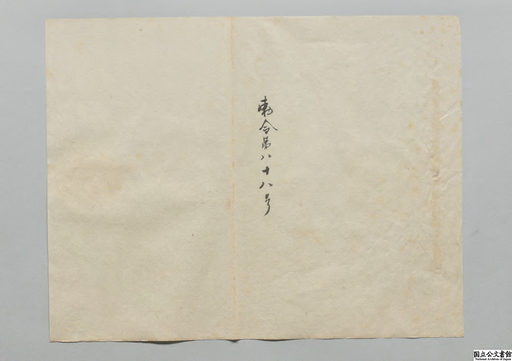 勅令第八十八号
国立公文書館
National Archives of Japan